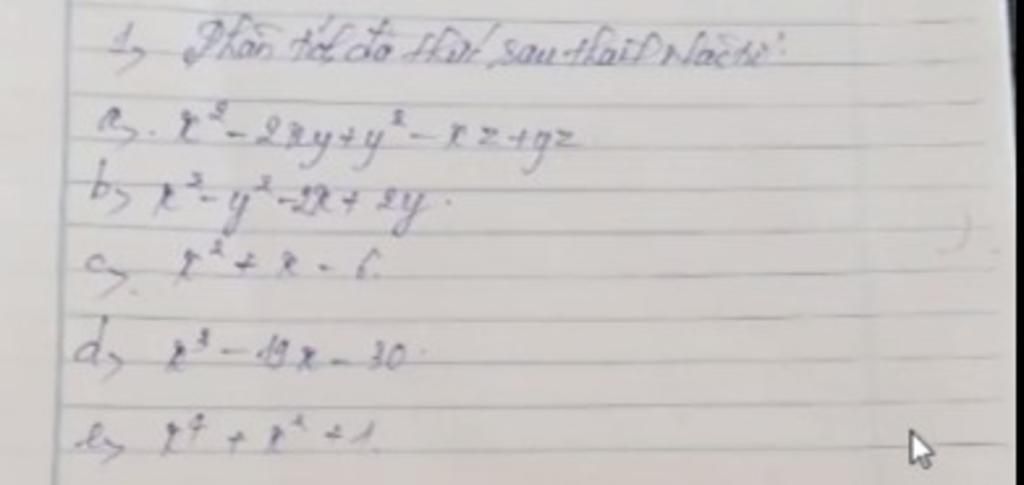 1, Phân tích đa thức sau thành Nhân tử:
a, x² - 2xy + y² - xz + yz
b, x² - y² - 2x + 2y.
c, x² + x - 6.
d, x³ - 19x - 30.
e, x⁴ + x² + 1.